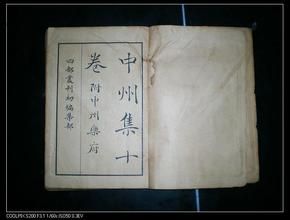 中州集十
卷附中州樂府
四部叢刊初編集部
COOLPIX S200 F3.1 1/60s ISO50 0.3EV